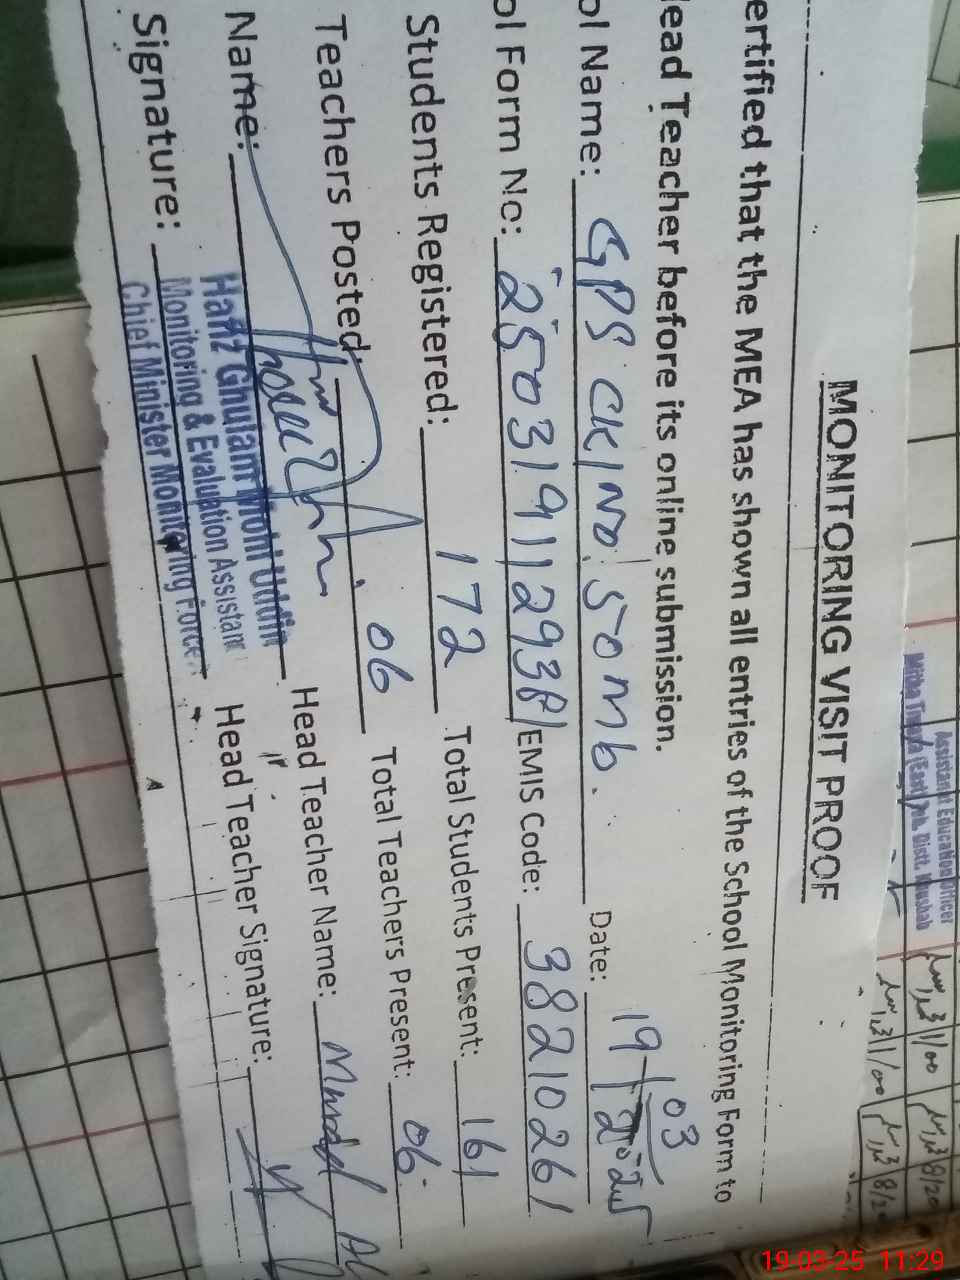 MONITORING VISIT PROOF
ertified that the MEA has shown all entries of the School Monitoring Form to
lead Teacher before its online submission.
ol Name: GPS CK/NO 50 Mb. Date: 19/03/2025
ol Form No: 2503191129381 EMIS Code: 38210261
Students Registered: 172 Total Students Present: 161
Teachers Posted: 06 Total Teachers Present: 06
Name: Head Teacher Name:
Signature: Head Teacher Signature:
Hafiz Ghulam Mohi Uddin
Monitoring & Evaluation Assistant
Chief Minister Monitoring Force
Assistant Education Officer
Mitha Tiwana (East) Teh. Distt. Khushab
19-03-25 11:29